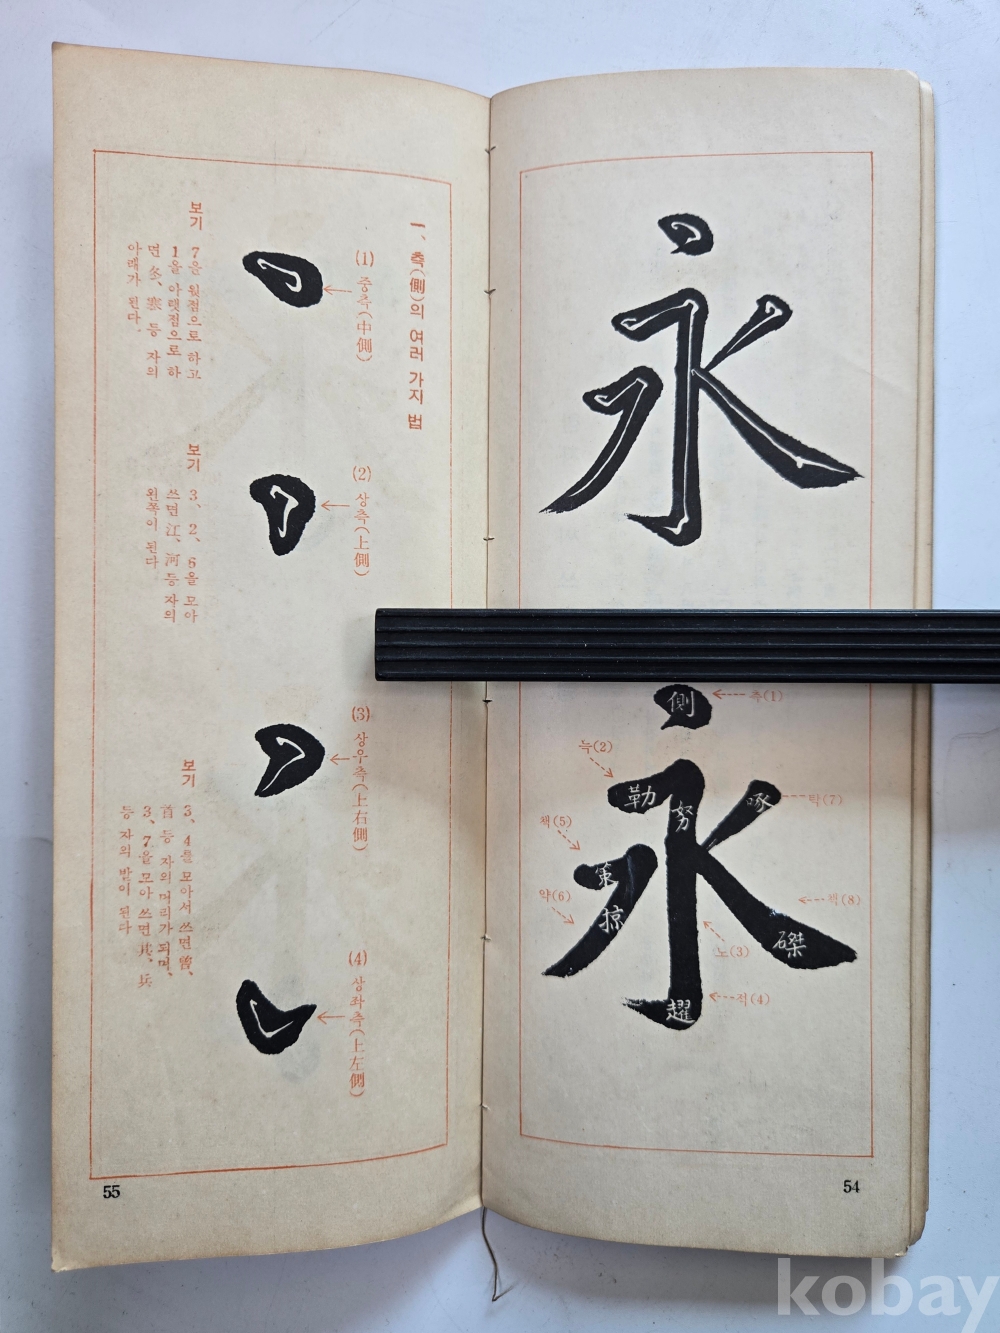 永
永
側
勒
努
趯
策
掠
啄
磔
측(1)
늑(2)
노(3)
적(4)
책(5)
약(6)
탁(7)
책(8)
54
一、측(側)의 여러 가지 법
(1) 중측(中側)
(2) 상측(上側)
(3) 상우측(上右側)
(4) 상좌측(上左側)
보기 7을 윗점으로 하고
1을 아랫점으로 하
면 冬、寒 등 자의
아래가 된다.
보기 3、2、6을 모아
쓰면 江、河 등 자의
왼쪽이 된다
보기 3、4를 모아서 쓰면 曾、
首 등 자의 머리가 되며、
3、7을 모아 쓰면 其、兵
등 자의 발이 된다
55
kobay